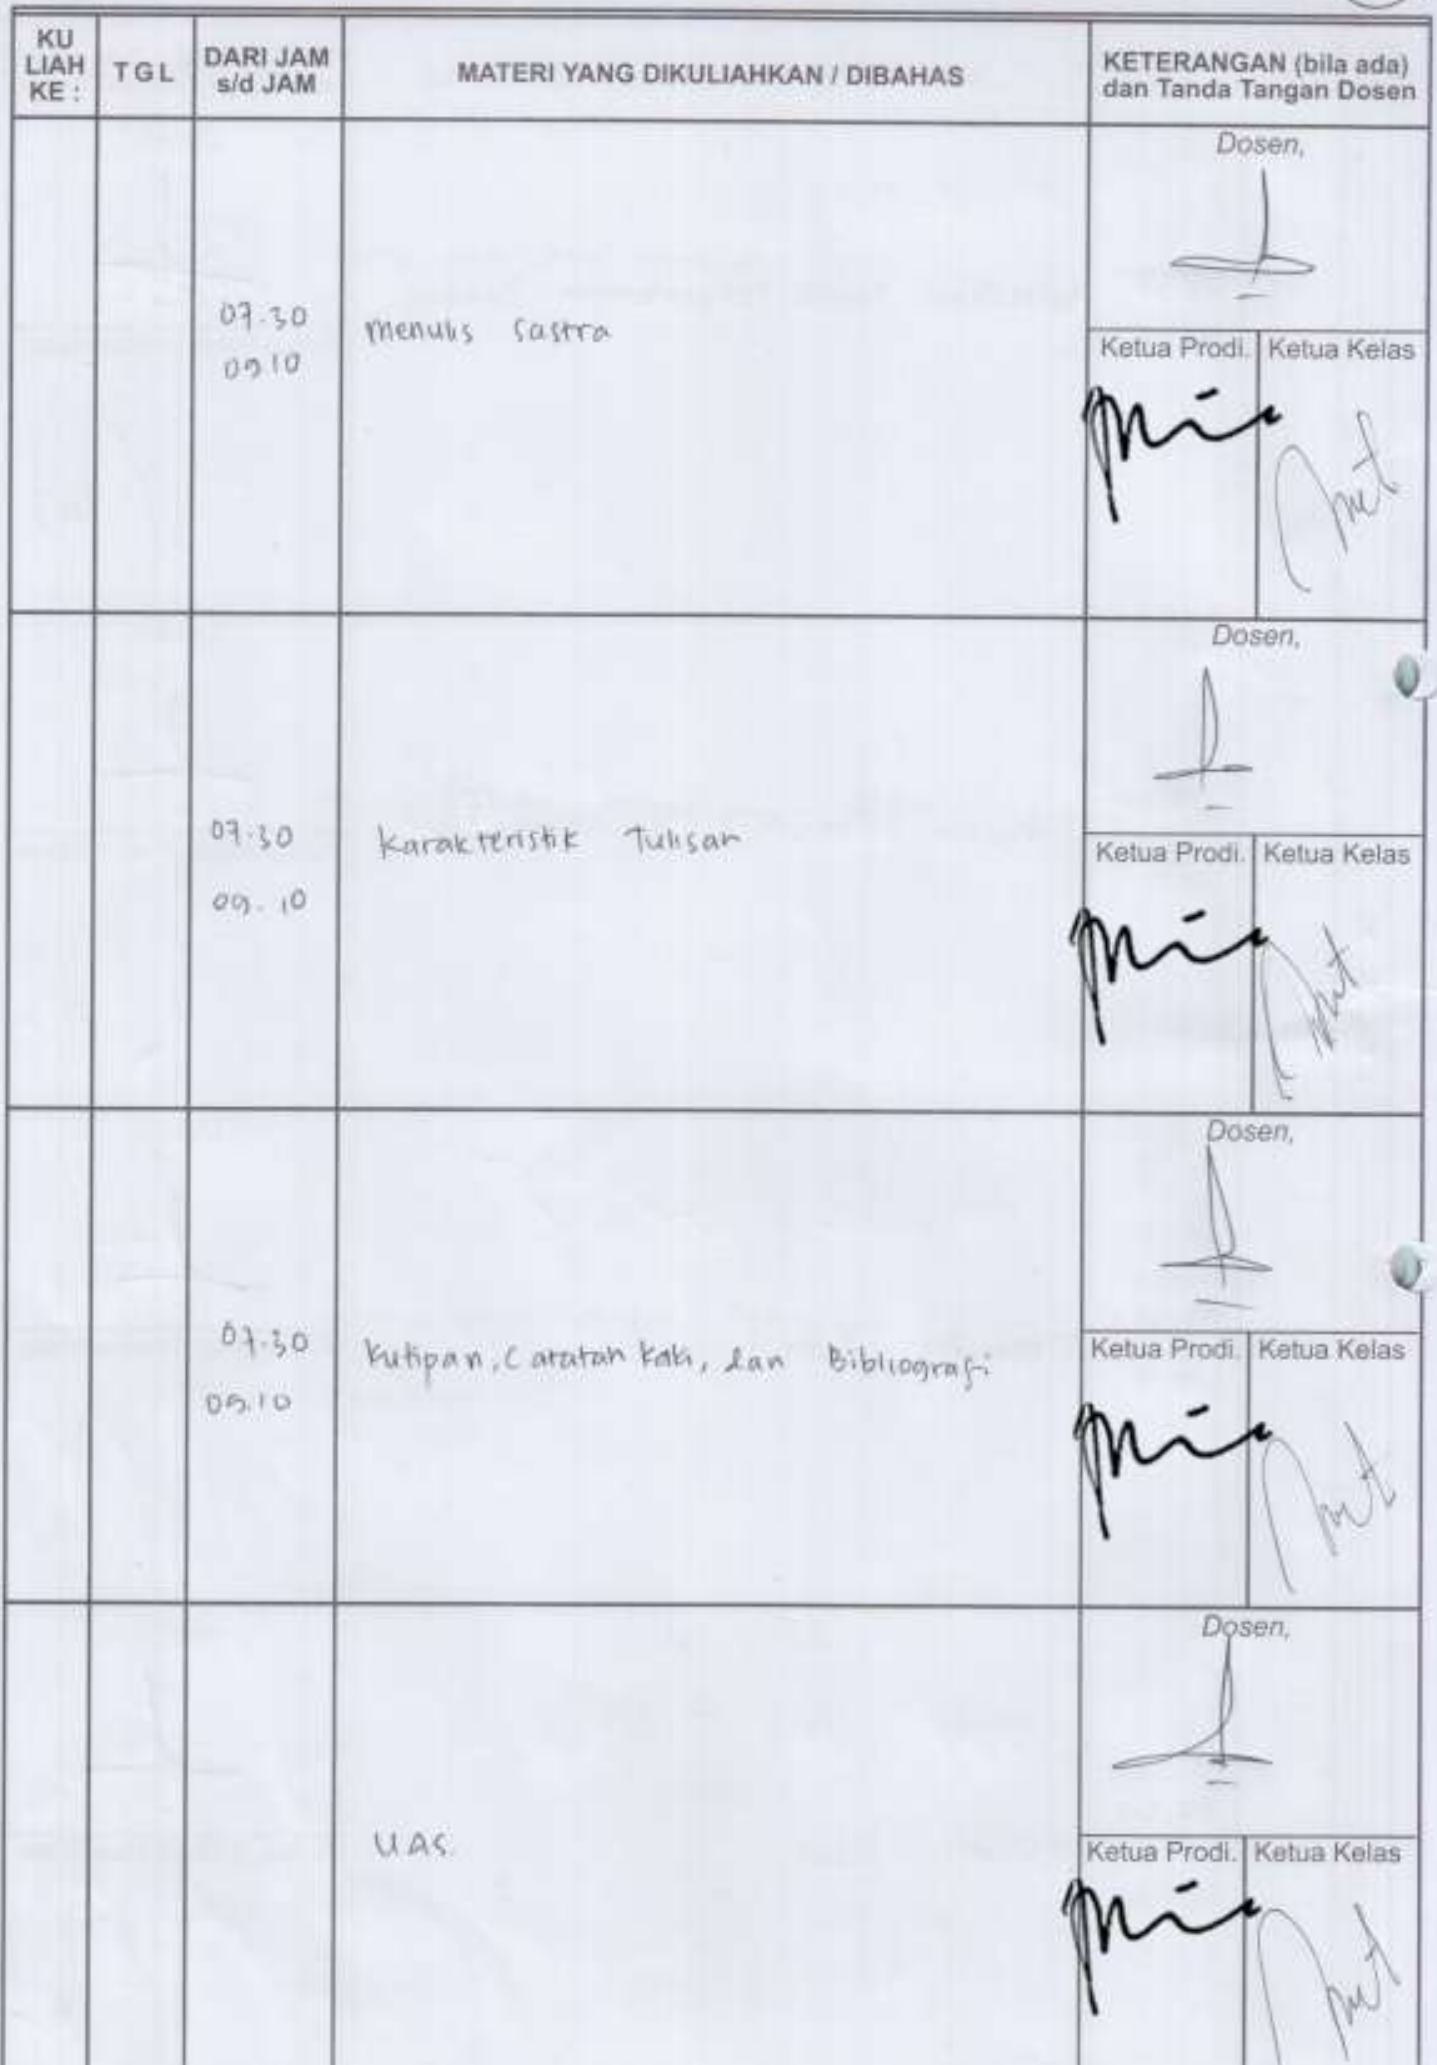 KU LIAH KE :
TGL
DARI JAM s/d JAM
MATERI YANG DIKULIAHKAN / DIBAHAS
KETERANGAN (bila ada) dan Tanda Tangan Dosen
Dosen,
07.30
09.10
Menulis Sastra
Ketua Prodi.
Ketua Kelas
Dosen,
07.30
09.10
Karakteristik Tulisan
Ketua Prodi.
Ketua Kelas
Dosen,
07.30
09.10
Kutipan, Catatan Kaki, dan Bibliografi
Ketua Prodi.
Ketua Kelas
Dosen,
UAS.
Ketua Prodi.
Ketua Kelas